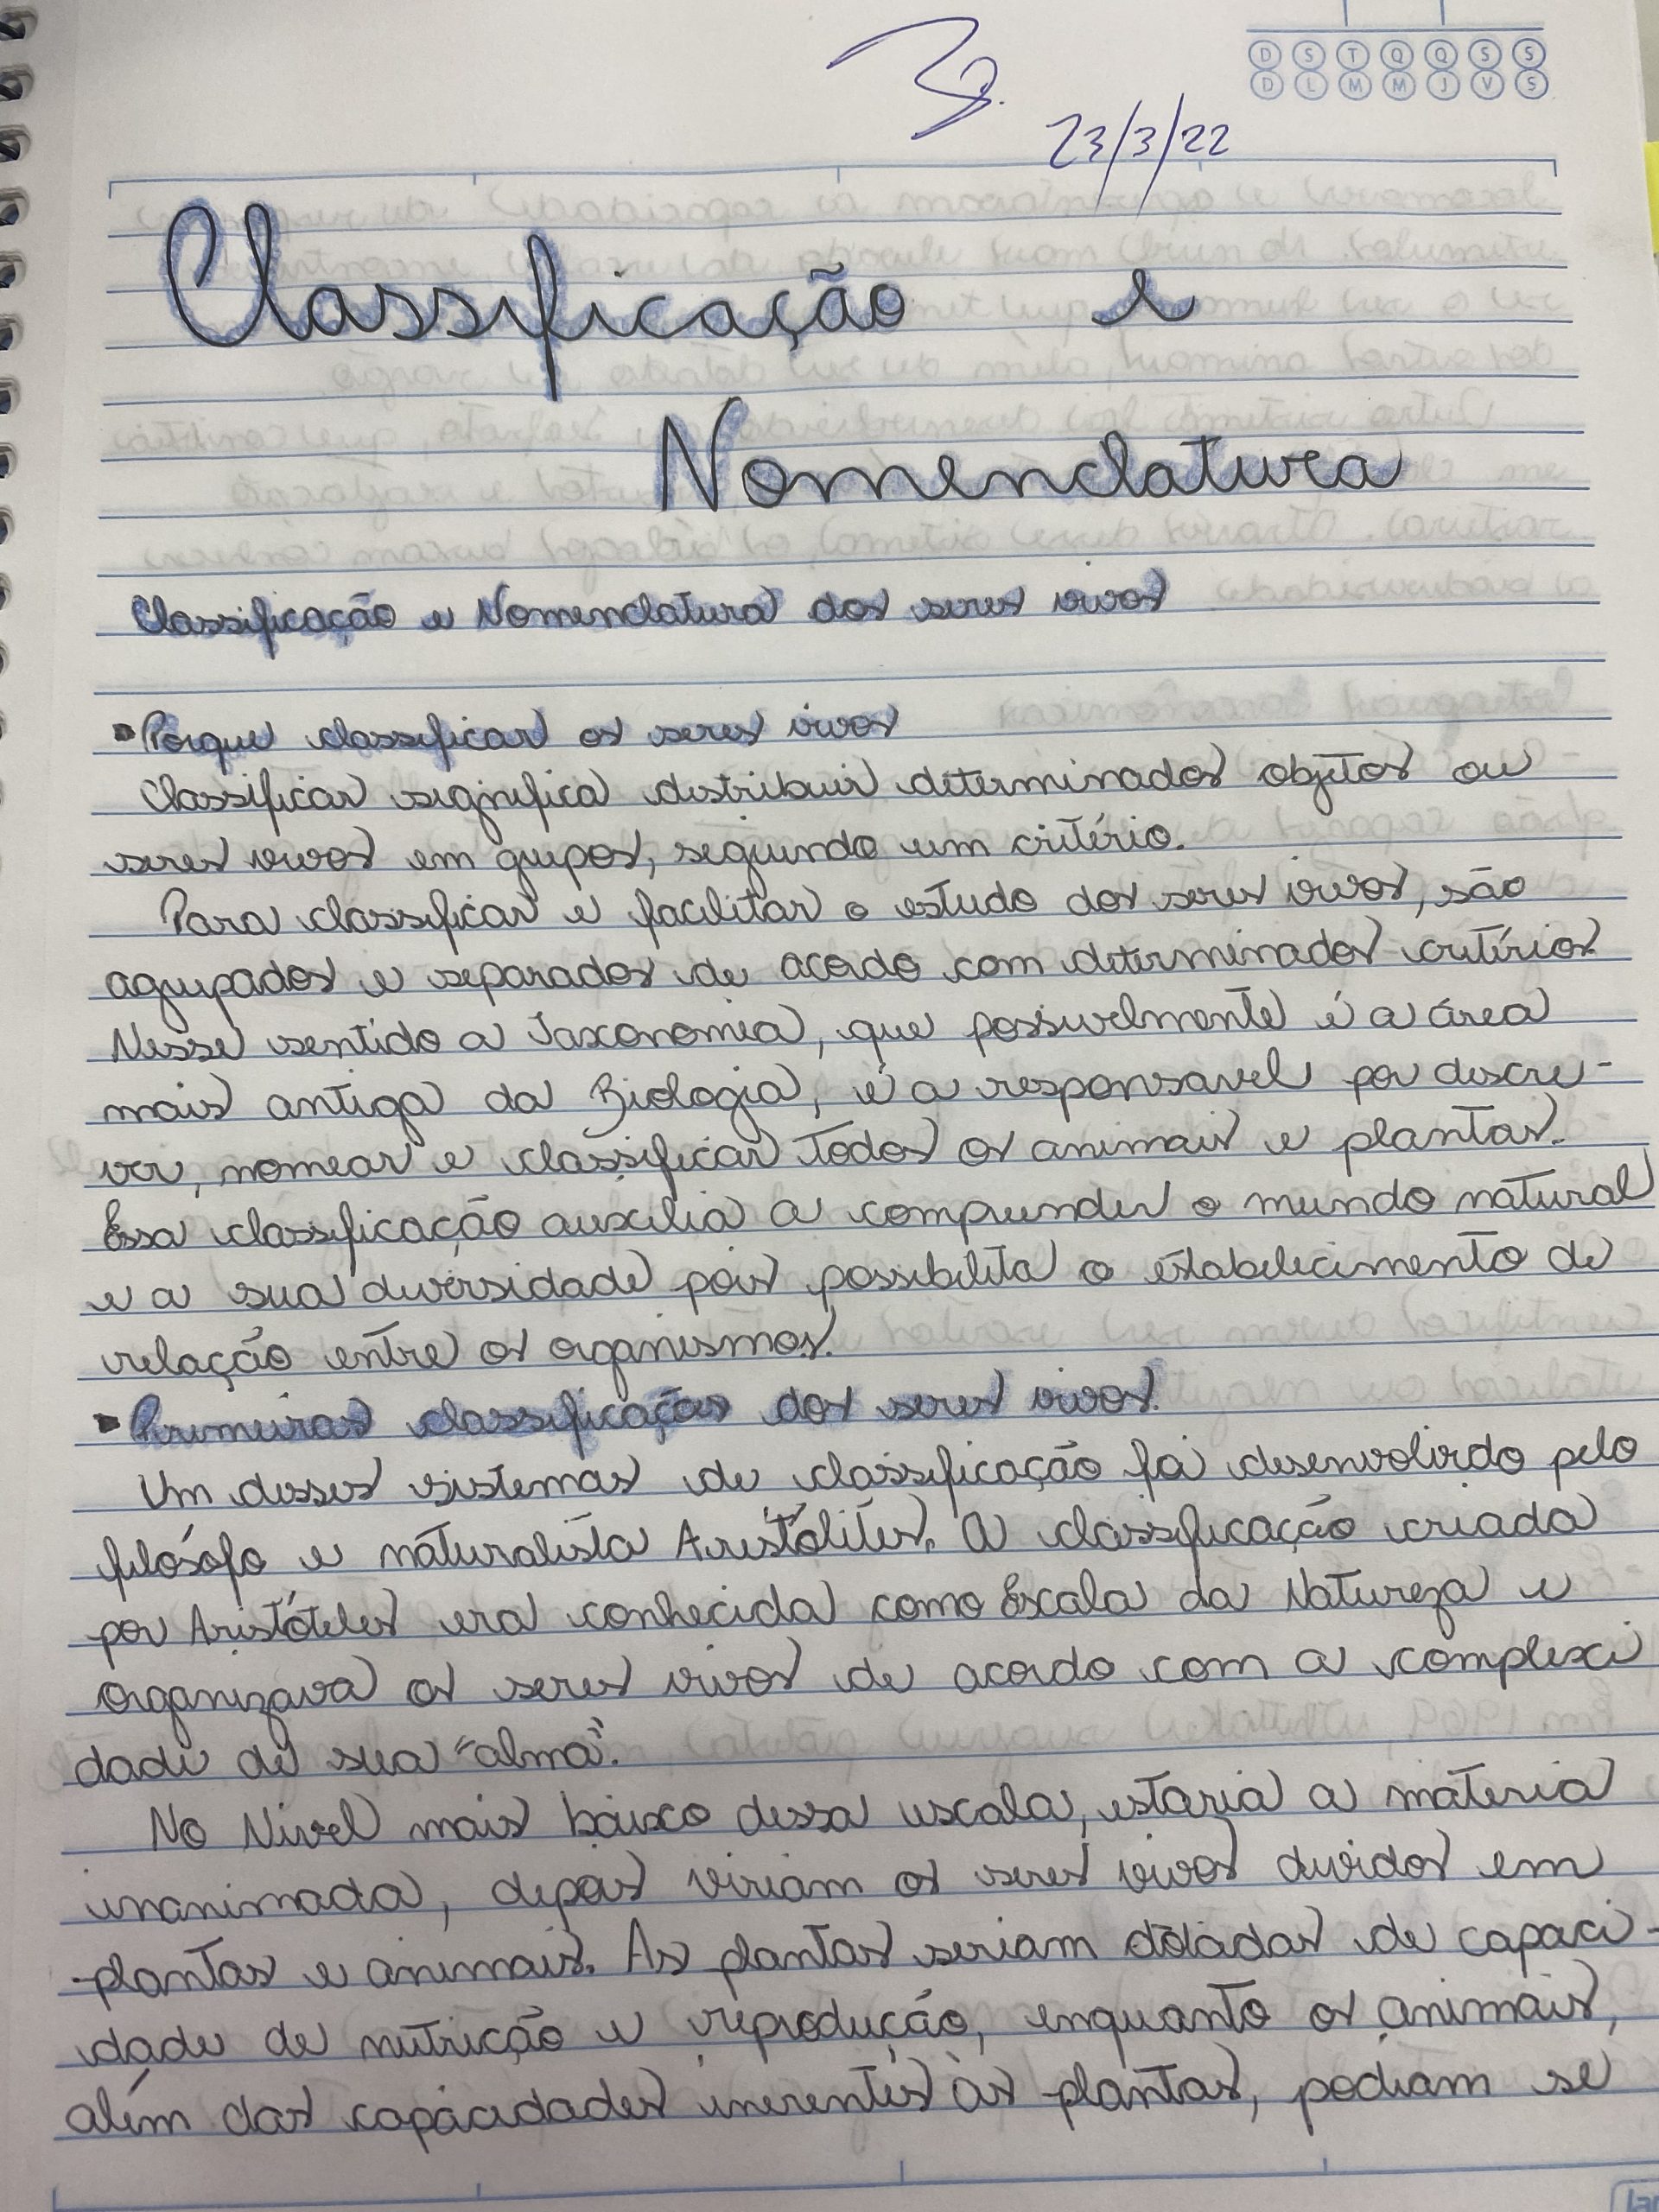 D S T Q Q S S
D L M M J V S
23/3/22
Classificação e
Nomenclatura
Classificação e Nomenclatura dos seres vivos
Porque classificar os seres vivos
Classificar significa distribuir determinados objetos ou
seres vivos em grupos, segundo um critério.
Para classificar e facilitar o estudo dos seres vivos, são
agrupados e separados de acordo com determinados critérios.
Nesse sentido a Taxonomia, que possivelmente é a área
mais antiga da Biologia, é a responsavel por descre-
ver, nomear e classificar todos os animais e plantas.
Essa classificação auxilia a compreender o mundo natural
e a sua diversidade pois possibilita o estabelecimento de
relação entre os organismos.
Primeiras classificações dos seres vivos.
Um desses sistemas de classificação foi desenvolvido pelo
filósofo e naturalista Aristólites. A classificação criada
por Aristóteles era conhecida como Escala da Natureza e
organizava os seres vivos de acordo com a complexi
dade de sua "alma".
No Nível mais baixo dessa escala, estaria a materia
inanimada, depois viriam os seres vivos dividos em
plantas e animais. As plantas seriam dotadas de capaci-
dade de nutrição e reprodução, enquanto os animais,
além das capacidades inerentes às plantas, podiam se